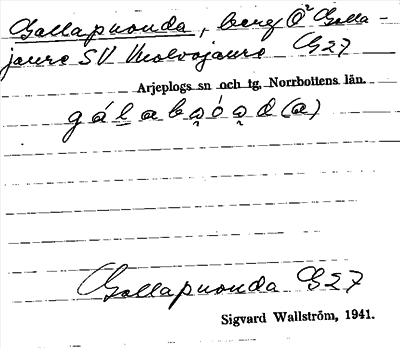 Gallapuonda, berg Ö² Galla-
jaure SV Kuolvojaure G27
Arjeplogs sn och tg, Norrbottens län.
gálabu̯óu̯d(a)
Gallapuonda G27
Sigvard Wallström, 1941.